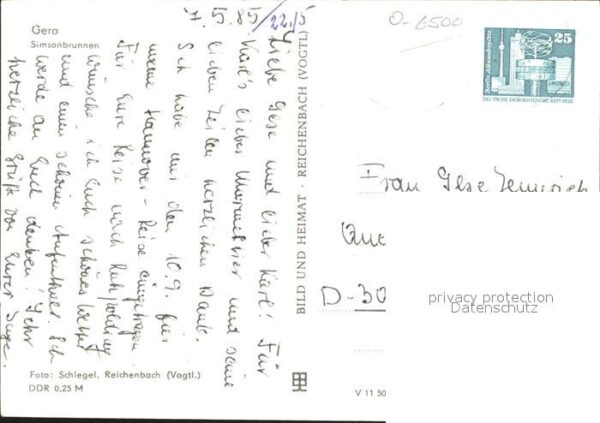 Gera
Simsonbrunnen
7.5.85
22/5
Liebe Ilse und lieber Karl! Für
Karl's liebes und seine
lieben Zeilen herzlichen Dank.
Ich habe mir den 10.9. für
meine Hannover-Reise eingetragen.
Für Eure Reise nach Ruhpolding
wünsche ich Euch schönes Wetter
und einen schönen Aufenthalt. Ich
werde an Euch denken! Sehr
herzliche Grüße von Eurer Inge.
Foto: Schlegel, Reichenbach (Vogtl.)
DDR 0,25 M
BILD UND HEIMAT · REICHENBACH (VOGTL)
V 11 50
O-6500
Berlin, Alexanderplatz
25
DEUTSCHE DEMOKRATISCHE REPUBLIK
Frau Ilse
D-30
privacy protection
Datenschutz